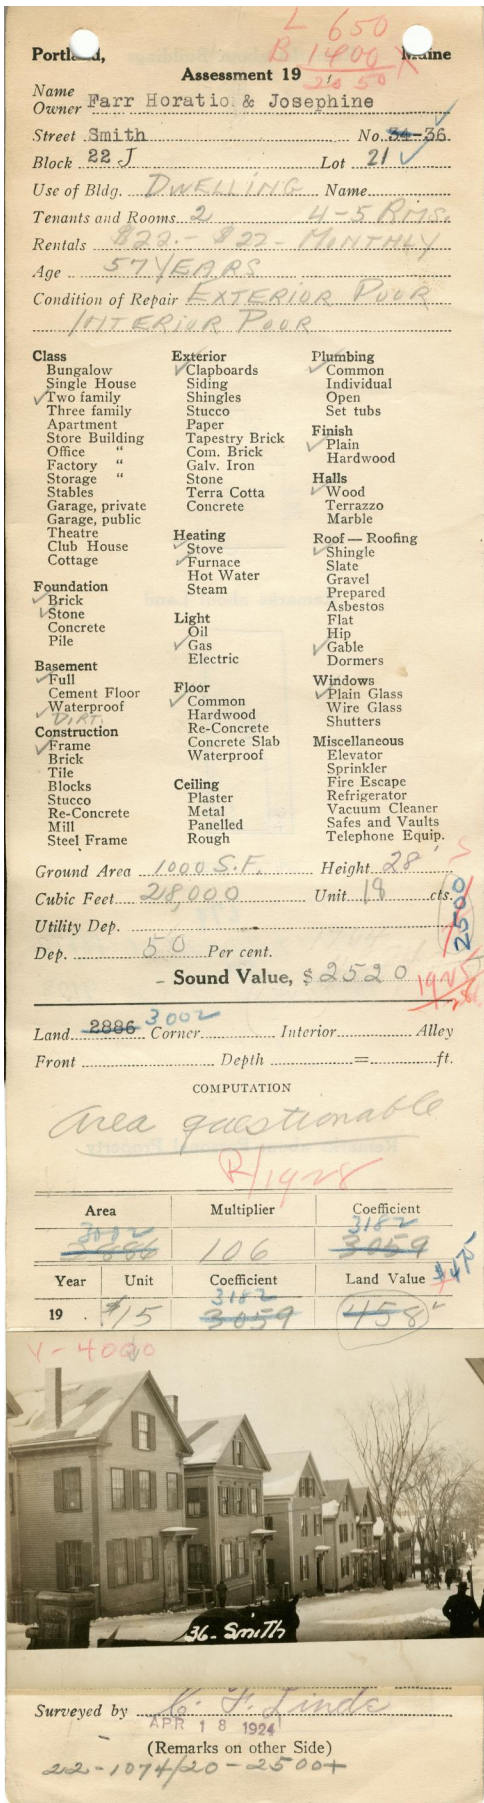 L 650
B 1400 X
2050
Portland, Maine
Assessment 19
Name
Owner Farr Horatio & Josephine
Street Smith No. 34-36
Block 22 J Lot 21
Use of Bldg. DWELLING Name
Tenants and Rooms 2 4-5 RMS.
Rentals $22.- $22- MONTHLY
Age 57 YEARS
Condition of Repair EXTERIOR POOR
INTERIOR POOR
Class
Bungalow
Single House
Two family
Three family
Apartment
Store Building
Office "
Factory "
Storage "
Stables
Garage, private
Garage, public
Theatre
Club House
Cottage
Foundation
Brick
Stone
Concrete
Pile
Basement
Full
Cement Floor
Waterproof
DIRT.
Construction
Frame
Brick
Tile
Blocks
Stucco
Re-Concrete
Mill
Steel Frame
Exterior
Clapboards
Siding
Shingles
Stucco
Paper
Tapestry Brick
Com. Brick
Galv. Iron
Stone
Terra Cotta
Concrete
Heating
Stove
Furnace
Hot Water
Steam
Light
Oil
Gas
Electric
Floor
Common
Hardwood
Re-Concrete
Concrete Slab
Waterproof
Ceiling
Plaster
Metal
Panelled
Rough
Plumbing
Common
Individual
Open
Set tubs
Finish
Plain
Hardwood
Halls
Wood
Terrazzo
Marble
Roof — Roofing
Shingle
Slate
Gravel
Prepared
Asbestos
Flat
Hip
Gable
Dormers
Windows
Plain Glass
Wire Glass
Shutters
Miscellaneous
Elevator
Sprinkler
Fire Escape
Refrigerator
Vacuum Cleaner
Safes and Vaults
Telephone Equip.
Ground Area 1000 S.F. Height 28
Cubic Feet 28,000 Unit 18 cts.
2500
Utility Dep.
Dep. 50 Per cent.
Sound Value, $2520
Land 2886 3002 Corner Interior Alley
Front Depth = ft.
COMPUTATION
Area questionable
R/1928
Area Multiplier Coefficient
3002 3182
2886 106 3059
$475
Year Unit Coefficient Land Value
3182
19 $15 3059 458
V-4000
36-Smith
Surveyed by C. F. Linde
APR 18 1924
(Remarks on other Side)
22-1074/20-2500+